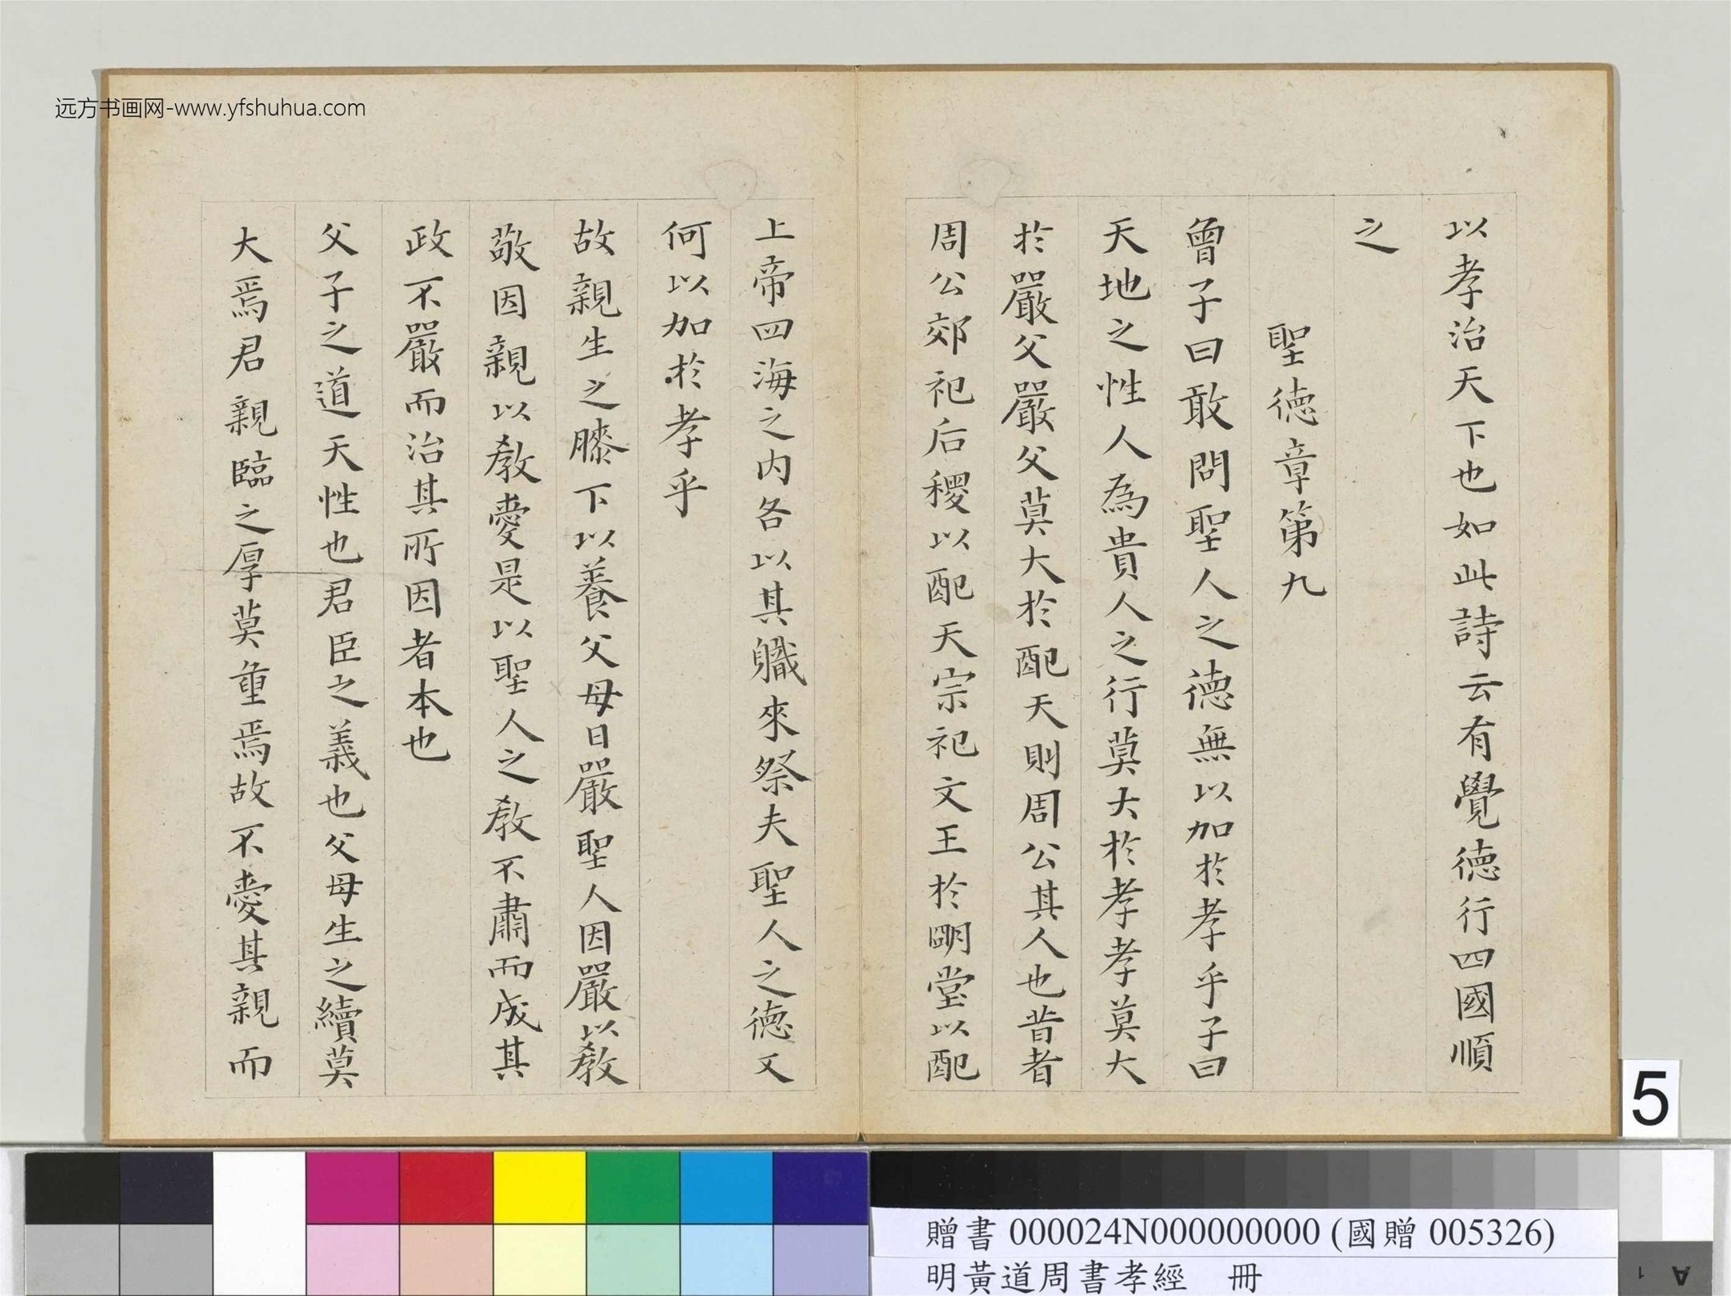 远方书画网-www.yfshuhua.com
以孝治天下也如此詩云有覺德行四國順
之
聖德章第九
曾子曰敢問聖人之德無以加於孝乎子曰
天地之性人為貴人之行莫大於孝孝莫大
於嚴父嚴父莫大於配天則周公其人也昔者
周公郊祀后稷以配天宗祀文王於明堂以配
上帝四海之内各以其職來祭夫聖人之德又
何以加於孝乎
故親生之膝下以養父母日嚴聖人因嚴以敎
敬因親以敎愛是以聖人之敎不肅而成其
政不嚴而治其所因者本也
父子之道天性也君臣之義也父母生之續莫
大焉君親臨之厚莫重焉故不愛其親而
5
贈書 000024N000000000 (國贈 005326)
明黃道周書孝經 冊
A 1